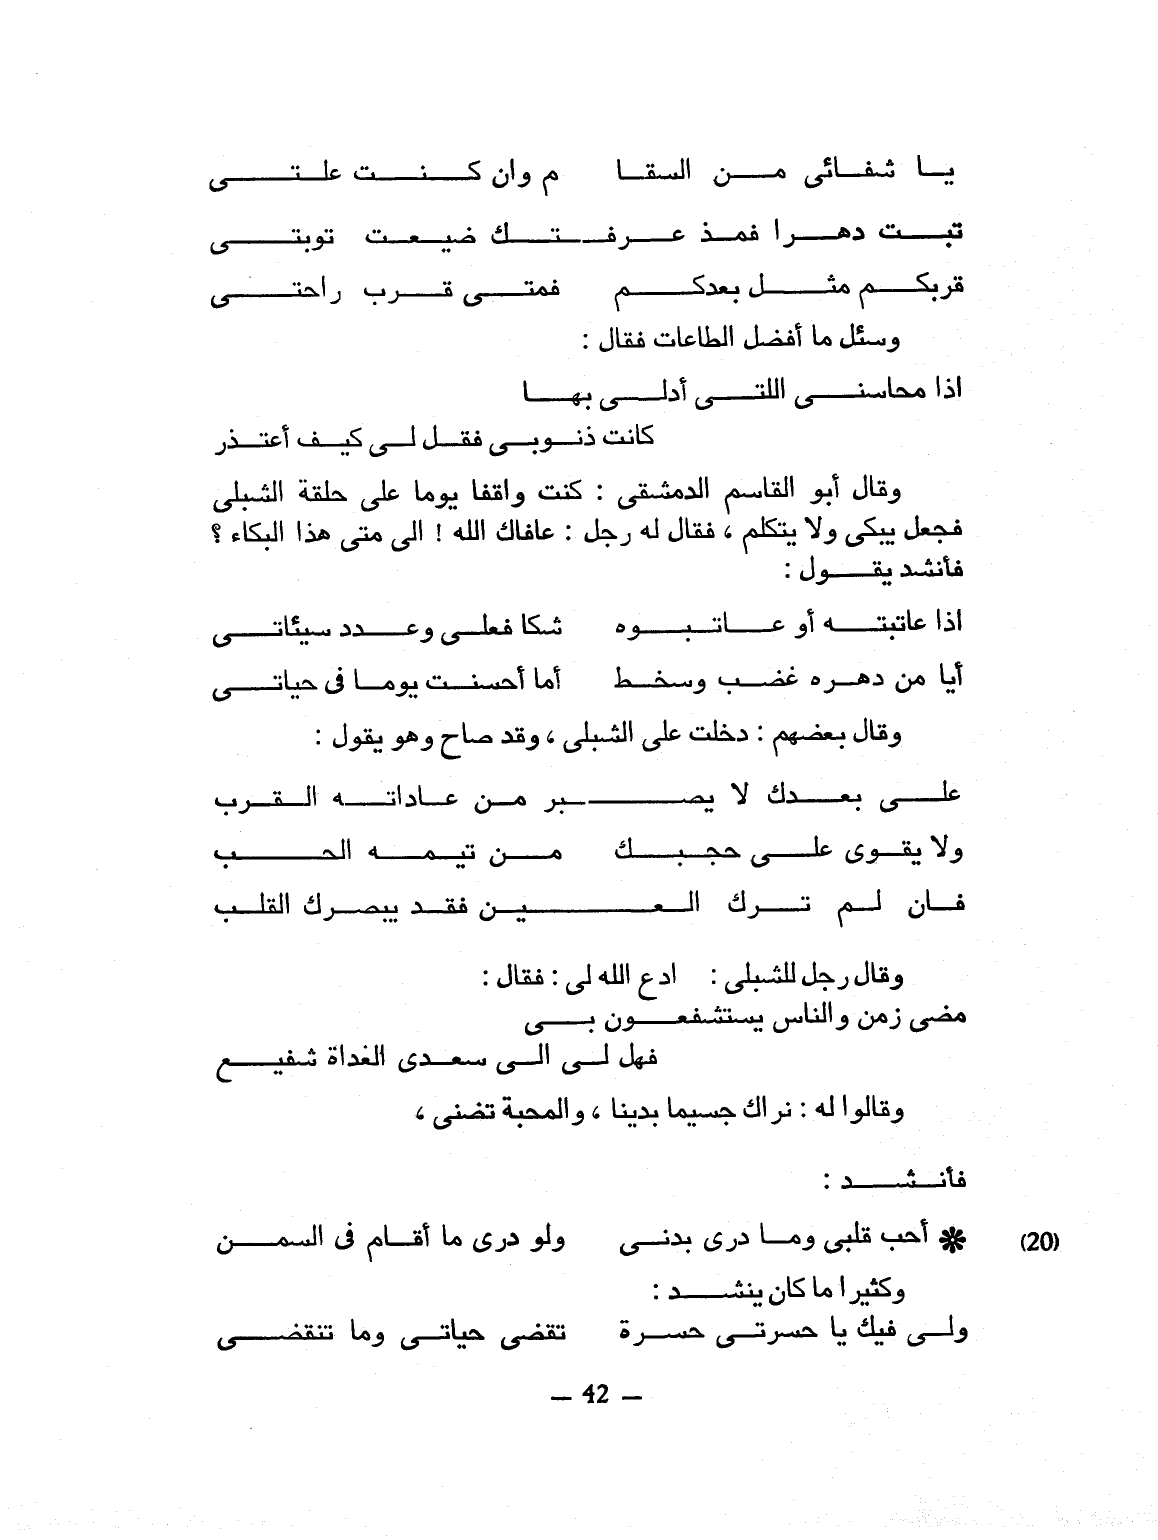 يا شفائى من السقا م وان كنت علتى
تبت دهرا فمذ عرفتك ضيعت توبتى
قربكم مثل بعدكم فمتى قرب راحتى
وسئل ما أفضل الطاعات فقال :
اذا محاسنى اللتى أدلى بها
كانت ذنوبى فقل لى كيف أعتذر
وقال أبو القاسم الدمشقى : كنت واقفا يوما على حلقة الشبلى
فجعل يبكى ولا يتكلم ، فقال له رجل : عافاك الله ! الى متى هذا البكاء ؟
فأنشد يقول :
اذا عاتبته أو عاتبوه شكا فعلى وعدد سيئاتى
أيا من دهره غضب وسخط أما أحسنت يوما فى حياتى
وقال بعضهم : دخلت على الشبلى ، وقد صاح وهو يقول :
على بعدك لا يصبر من عاداته القرب
ولا يقوى على حجبك من تيمه الحب
فان لم ترك العين فقد يبصرك القلب
وقال رجل للشبلى : ادع الله لى : فقال :
مضى زمن والناس يستشفعون بى
فهل لى الى سعدى الغداة شفيع
وقالوا له : نراك جسيما بدينا ، والمحبة تضنى ،
فأنشد :
(20) ✽ أحب قلبى وما درى بدنى ولو درى ما أقام فى السمن
وكثيرا ما كان ينشد :
ولى فيك يا حسرتى حسرة تقضى حياتى وما تنقضى
— 42 —